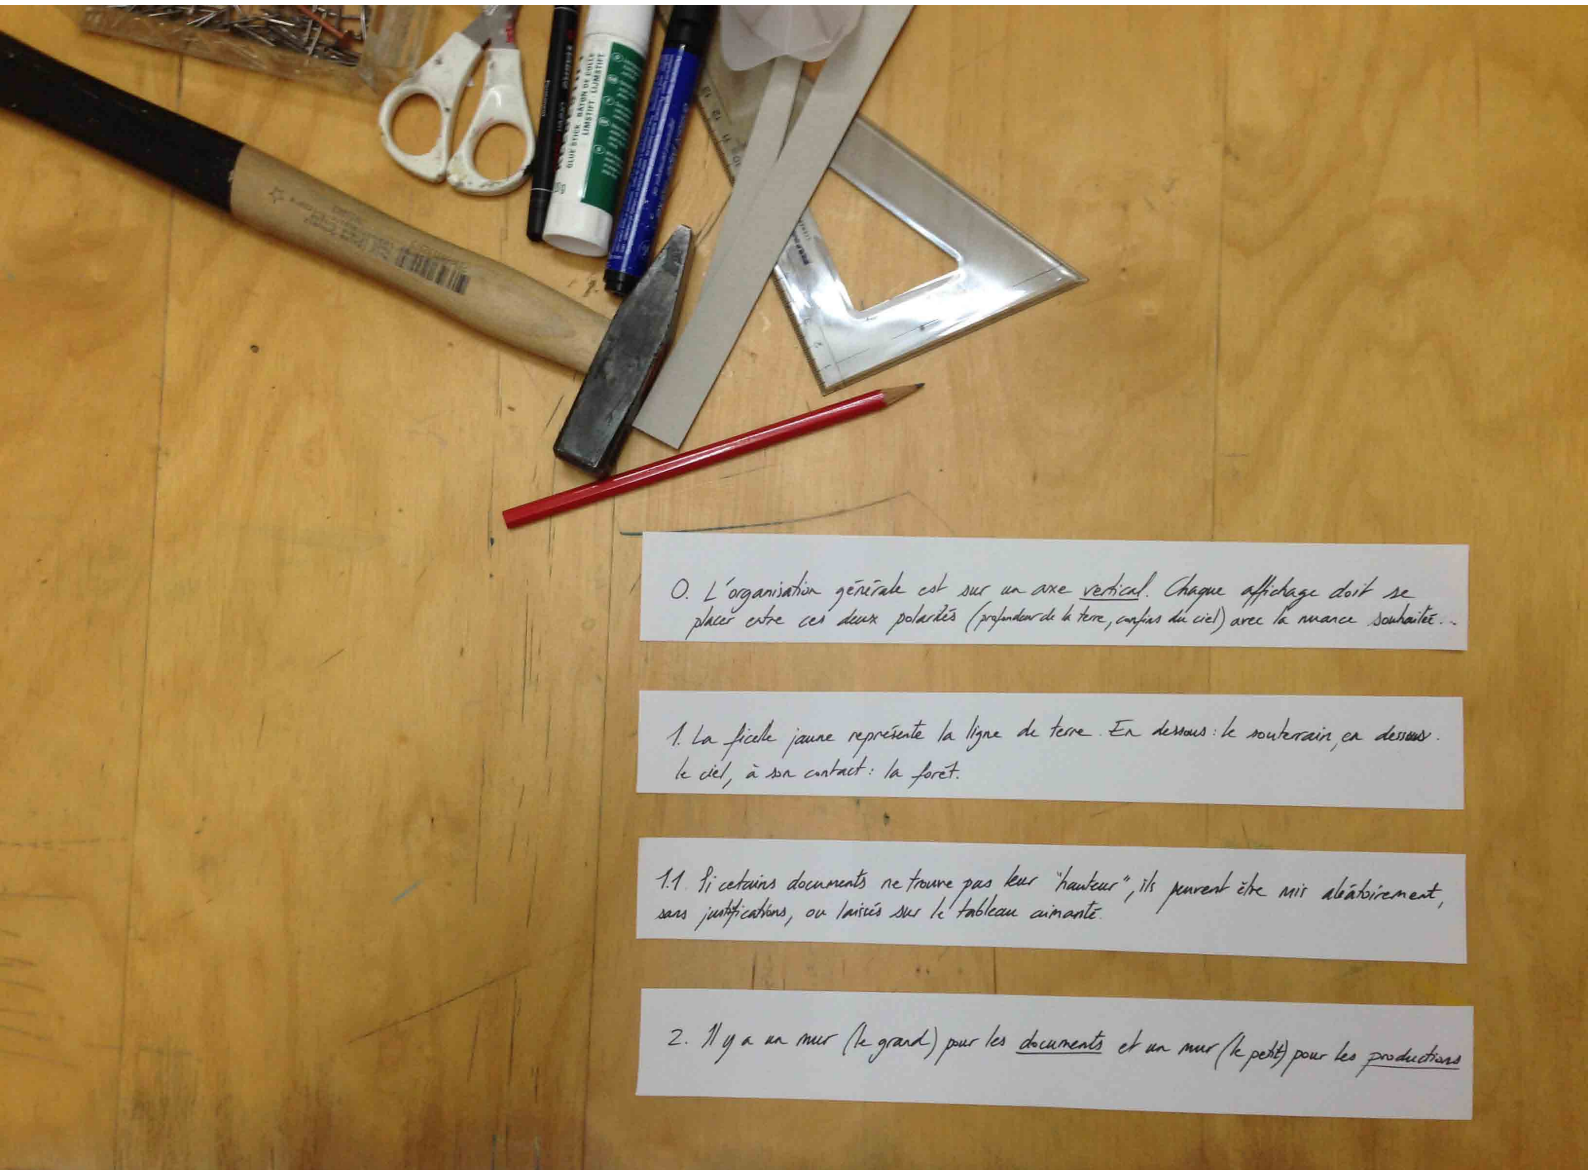 GLUE STICK BATON DE COLLE
LIMSTIFT LIJMSTIFT
0. L'organisation générale est sur un axe vertical. Chaque affichage doit se
placer entre ces deux polarités (profondeur de la terre, confins du ciel) avec la nuance souhaitée...
1. La ficelle jaune représente la ligne de terre. En dessous : le souterrain, en dessus.
le ciel, à son contact : la forêt.
1.1. Si certains documents ne trouve pas leur "hauteur", ils peuvent être mis aléatoirement,
sans justifications, ou laissés sur le tableau aimanté.
2. Il y a un mur (le grand) pour les documents et un mur (le petit) pour les productions